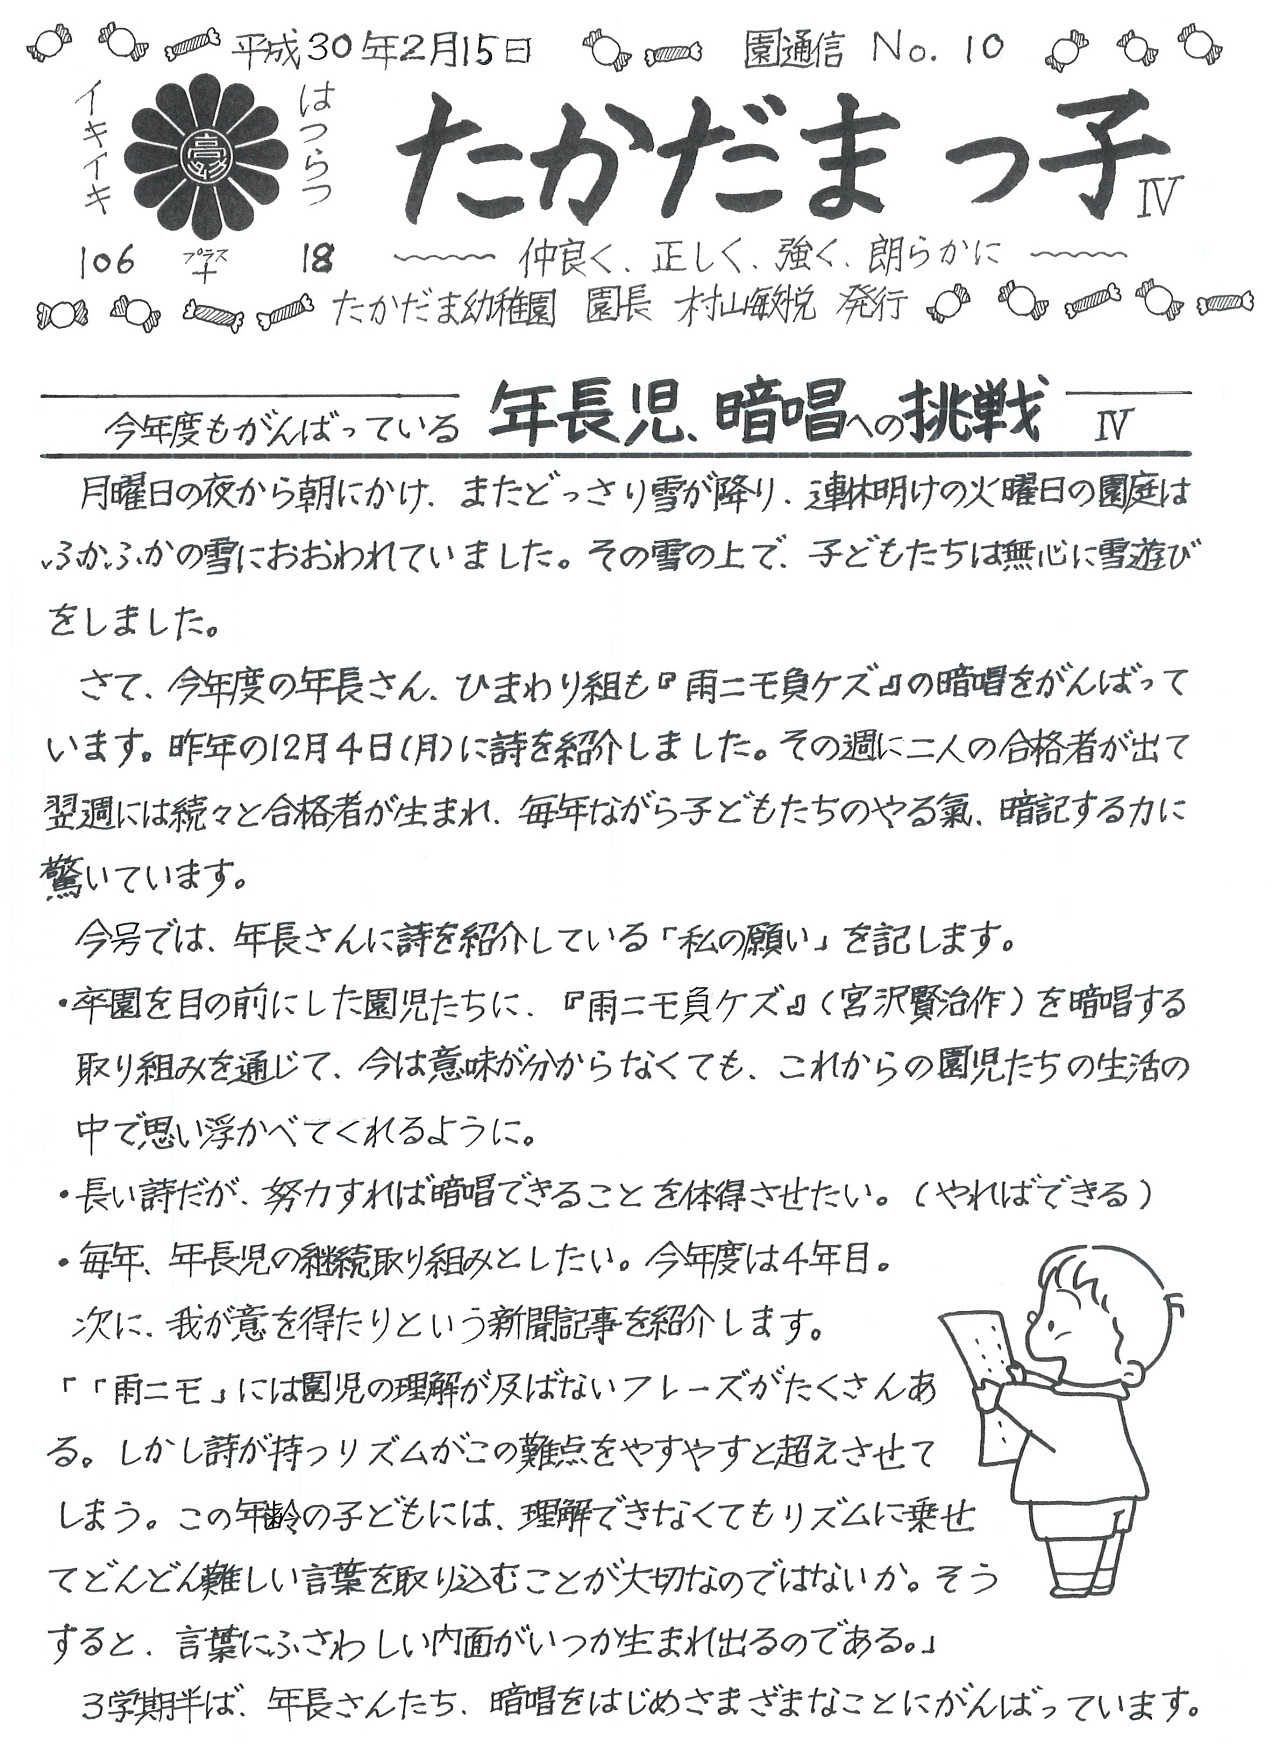 平成30年2月15日 園通信 No. 10
イキイキ
はつらつ
たかだまっ子 Ⅳ
106 プラス+ 18
仲良く、正しく、強く、朗らかに
たかだま幼稚園 園長 村山敏悦 発行
今年度もがんばっている 年長児、暗唱への挑戦 Ⅳ
月曜日の夜から朝にかけ、またどっさり雪が降り、連休明けの火曜日の園庭は
ふかふかの雪におおわれていました。その雪の上で、子どもたちは無心に雪遊び
をしました。
さて、今年度の年長さん、ひまわり組も『雨ニモ負ケズ』の暗唱をがんばって
います。昨年の12月4日(月)に詩を紹介しました。その週に二人の合格者が出て
翌週には続々と合格者が生まれ、毎年ながら子どもたちのやる氣、暗記する力に
驚いています。
今号では、年長さんに詩を紹介している「私の願い」を記します。
・卒園を目の前にした園児たちに、『雨ニモ負ケズ』(宮沢賢治作)を暗唱する
取り組みを通じて、今は意味が分からなくても、これからの園児たちの生活の
中で思い浮かべてくれるように。
・長い詩だが、努力すれば暗唱できることを体得させたい。(やればできる)
・毎年、年長児の継続取り組みとしたい。今年度は4年目。
次に、我が意を得たりという新聞記事を紹介します。
「「雨ニモ」には園児の理解が及ばないフレーズがたくさんあ
る。しかし詩が持つリズムがこの難点をやすやすと超えさせて
しまう。この年齢の子どもには、理解できなくてもリズムに乗せ
てどんどん難しい言葉を取り込むことが大切なのではないか。そう
すると、言葉にふさわしい内面がいつか生まれ出るのである。」
3学期半ば、年長さんたち、暗唱をはじめさまざまなことにがんばっています。